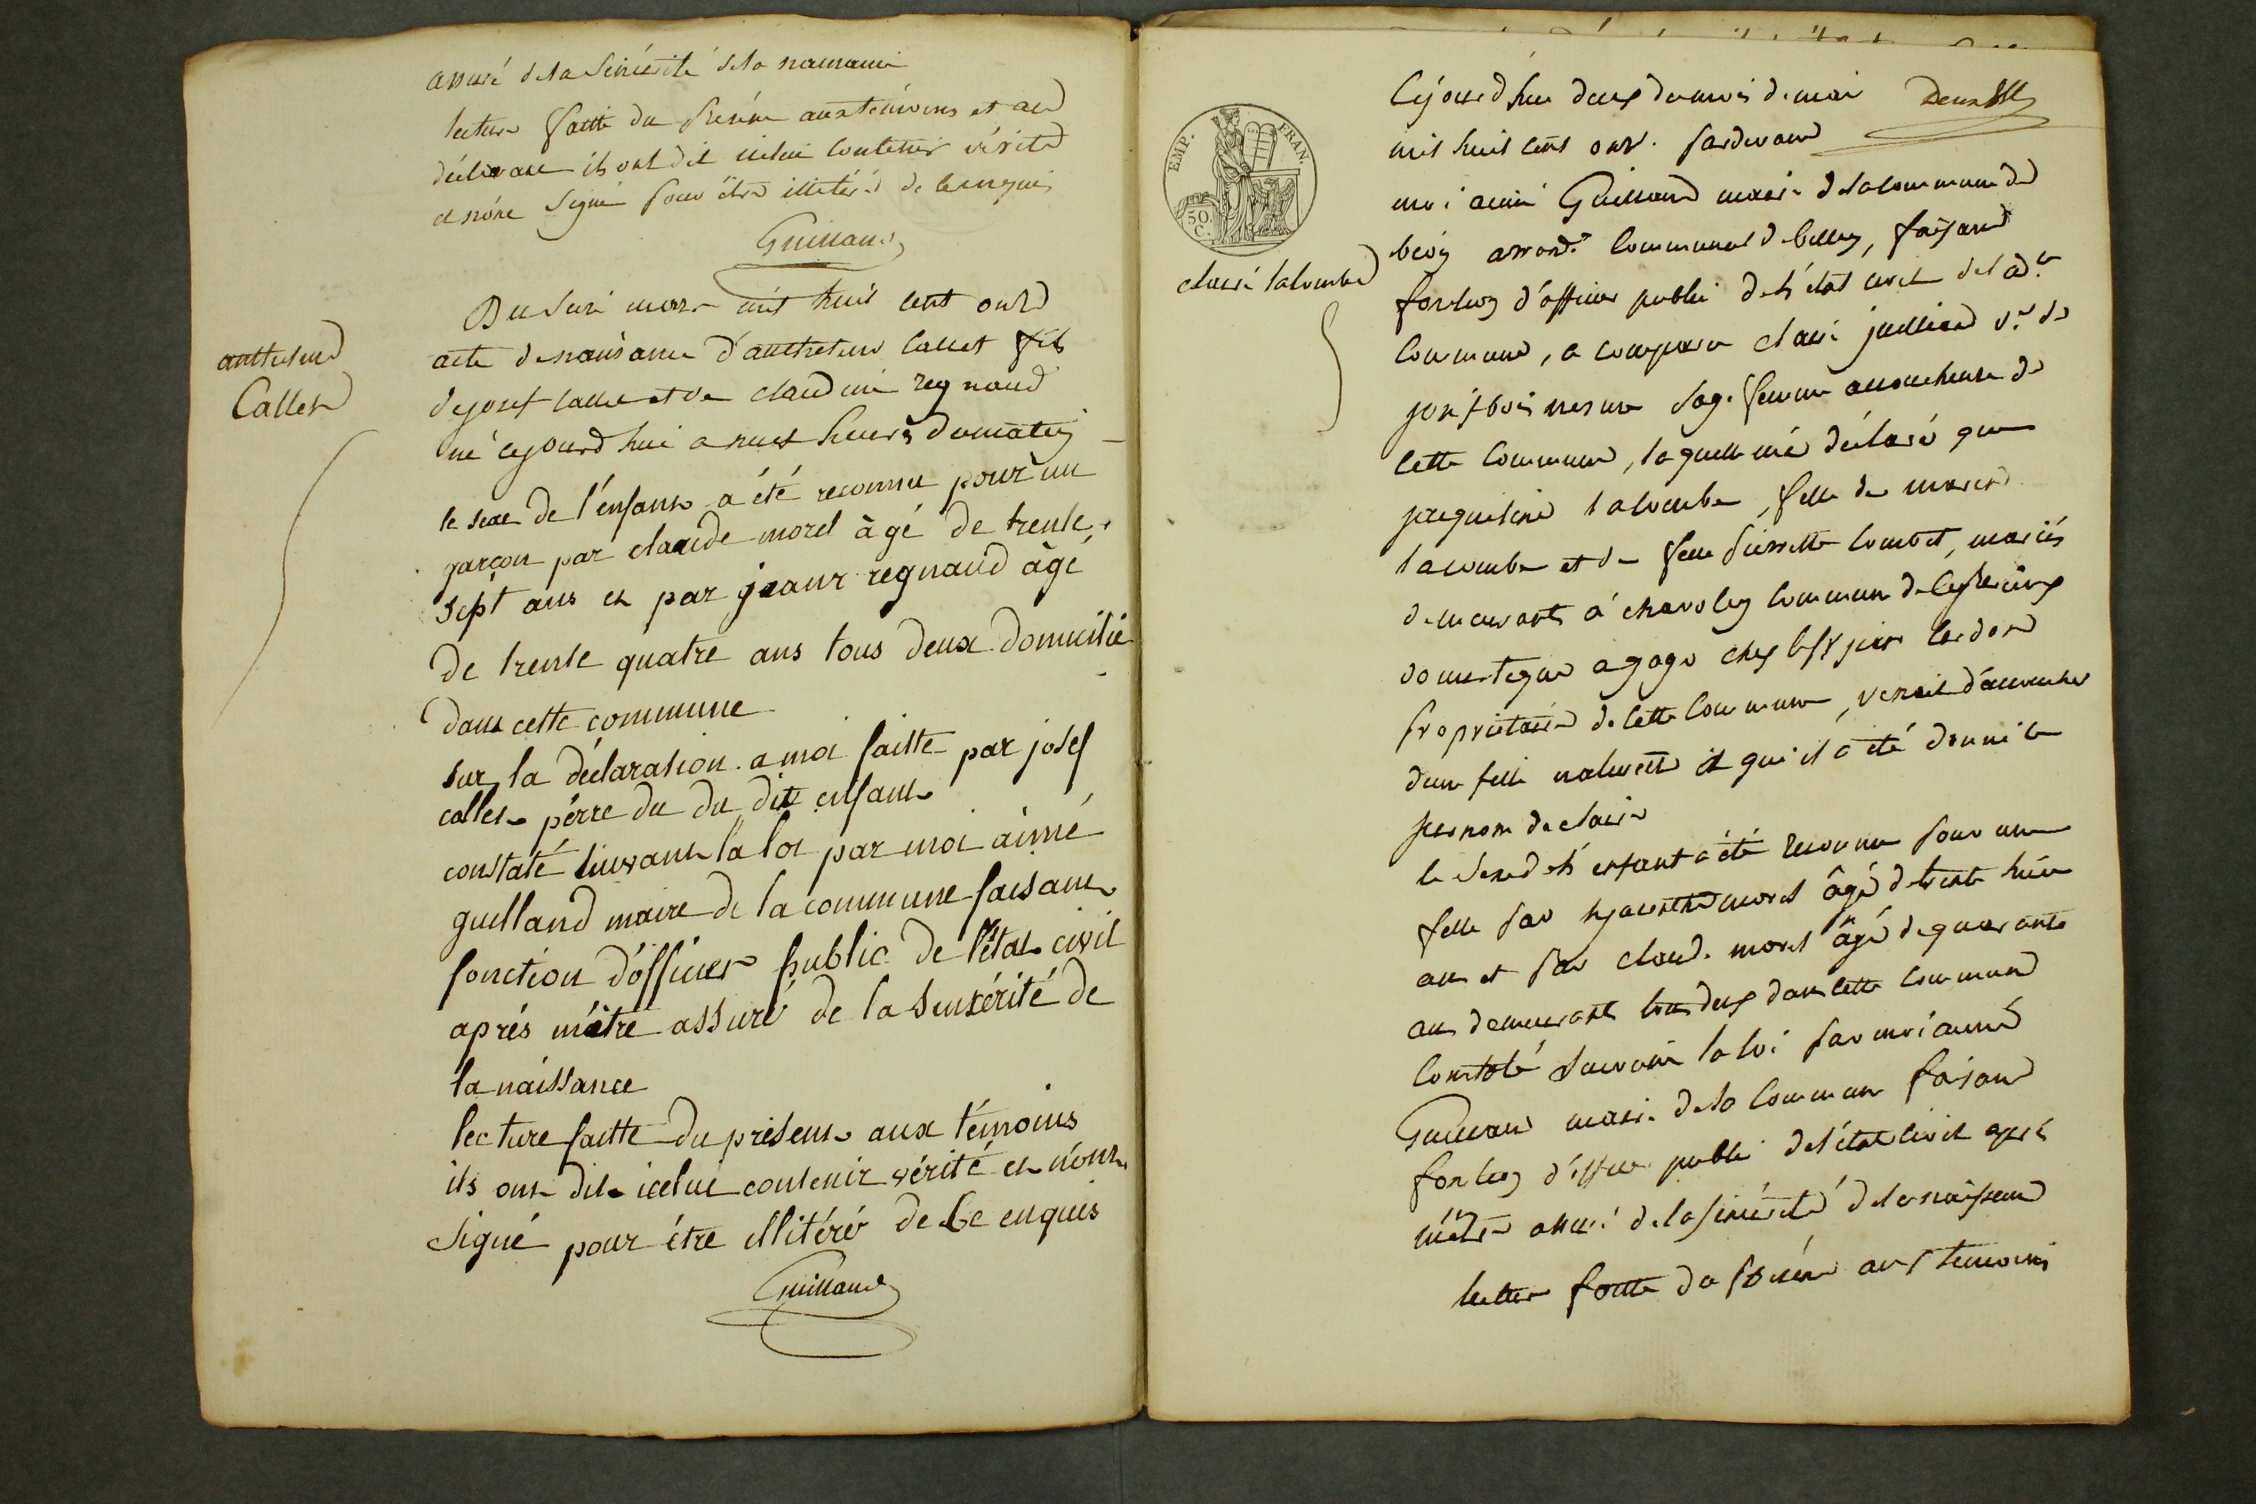 assuré de la sincérité de la naissance
lecture faitte du présent aux témoins et au
déclarant ils ont dit icelui contenir vérité
et n'ont signé pour être illitérés de ce enquis
Guilland
anthelme
Callet
Du seize mars mil huit cent onze
acte de naissance d'anthelme Callet fils
de josef callet et de claudine regnaud
né cejourd'hui a neuf heures du matin
le sexe de l'enfant a été reconnu pour un
garçon par claude morel àgé de trente
sept ans et par jeanr regnaud àgé
de trente quatre ans tous deux domicilié
dans cette commune
sur la déclaration a moi faitte par josef
callet pérre du du dit enfant
constaté suivant la loi par moi aimé
guilland maire de la commune faisant
fonction d'officier public de l'état civil
aprés m'étre assuré de la sinsérité de
la naissance
lecture faitte du présent aux témoins
ils ont dit icelui contenir vérité et n'ont
signé pour étre illitéré de ce enquis
Guilland
EMP. FRAN.
50.
C.
claire lacombe
Cejourd'hui deux du mois de mai
mil huit cent onze. pardevant
moi aimé Guilland maire de la commune de
arrond.t communal de belley, faisant
fonction d'officier public de l'état civil de la d.te
commune, a comparu claire juilland
sage femme accoucheuse de
cette commune, laquelle m'a déclaré que
jacqueline lacombe, fille de
lacombe et de feue pierrette combet, mariés
demeurants à commune de
domestique a gage chez le sr
propriétaire de cette commune, venait d'accoucher
d'une fille naturelle et qu'il a été donné le
prenom de claire
le sexe de l'enfant a été reconnu pour une
fille par hyacinthe morel âgé de trente huit
ans et par claude morel âgé de quarante
ans demeurants tous deux dans cette commune
Constaté suivant la loi par moi aimé
Guilland maire de la commune faisant
fonction d'officier public de l'état civil aprés
m'être assuré de la sincérité de la naissance
lecture faitte du présent aux temoins